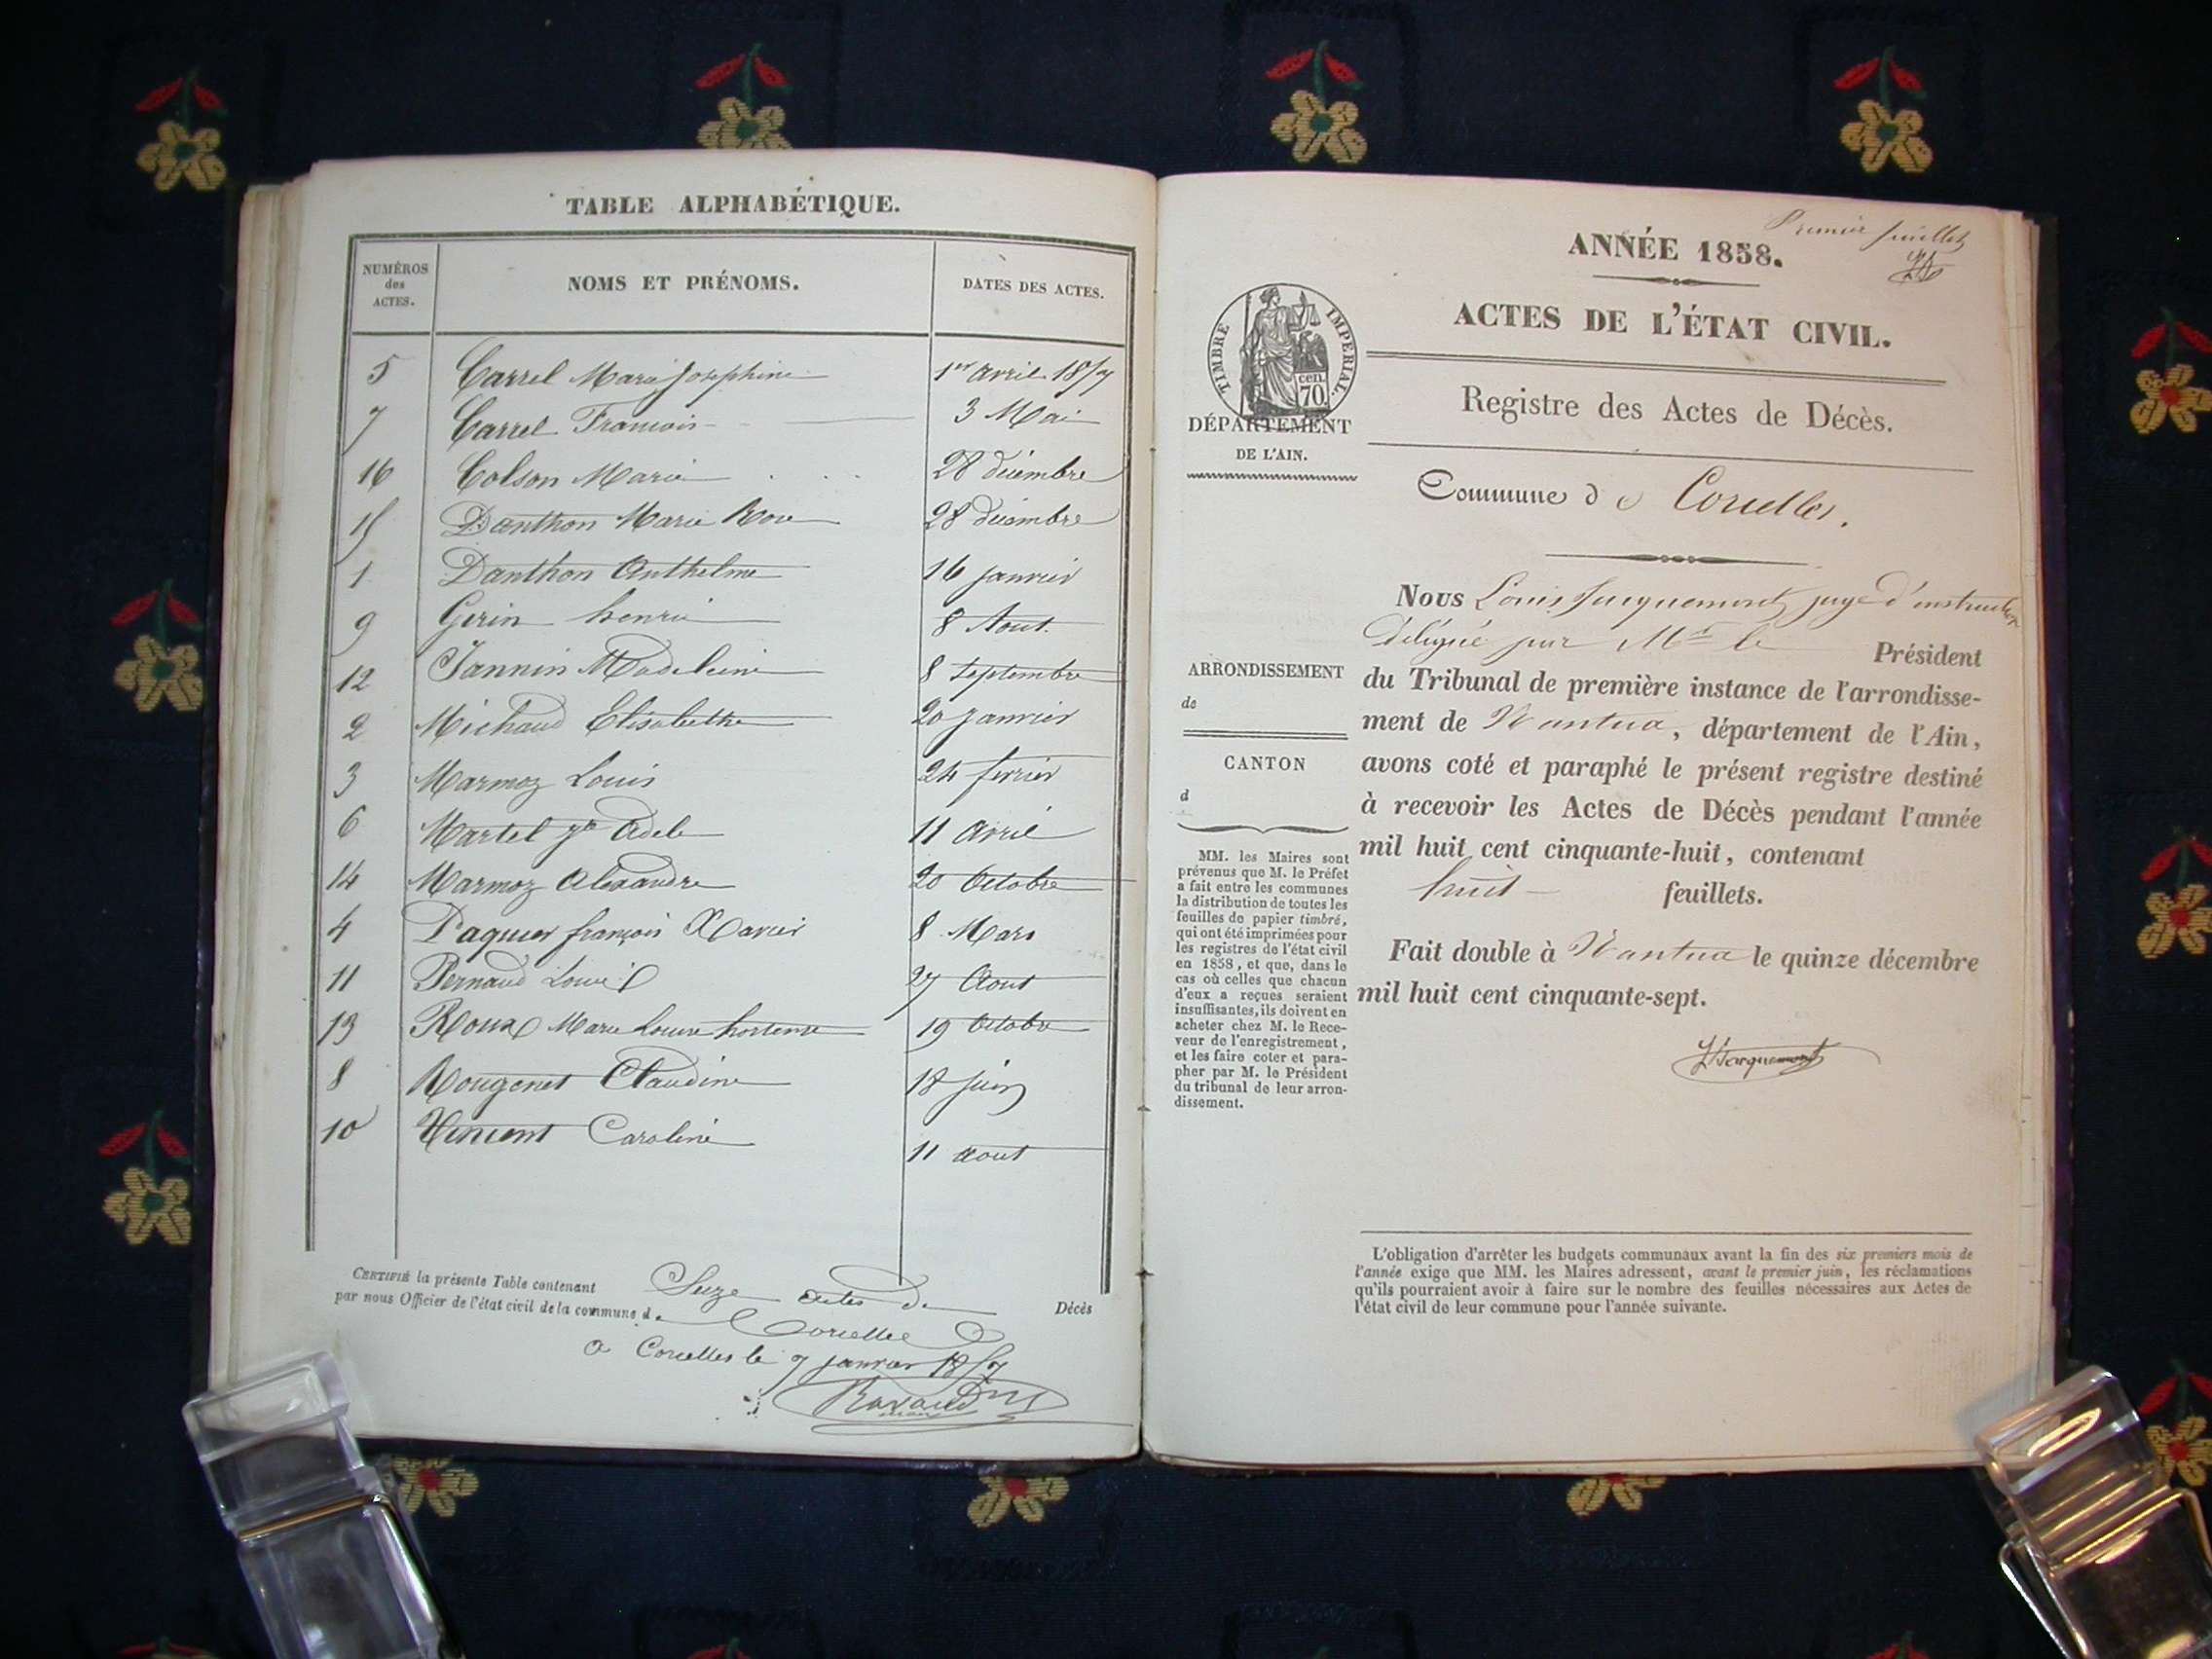 TABLE ALPHABÉTIQUE.
NUMÉROS
des
ACTES.
NOMS ET PRÉNOMS.
DATES DES ACTES.
5 Carrel Marie Josephine 1er Avril 1857
7 Carrel Francois 3 Mai
16 Colson Marie 28 décembre
15 Danthon Marie Rose 28 décembre
1 Danthon Anthelme 16 janvier
9 Gerin henri 8 Aout
12 Jannin Madeleine 8 Septembre
2 Michaud Elisabethe 20 janvier
3 Marmoz Louis 24 fevrier
6 Martel Adele 11 avril
14 Marmoz Alexandre 20 Octobre
4 Paquier françois Xavier 8 Mars
11 Pernaud Louis 27 Aout
13 Roux Marie Louise hortense 19 Octobre
8 Rougenet Claudine 18 juin
10 Vincent Caroline 11 aout
CERTIFIÉ la présente Table contenant Seize actes de Décès
par nous Officier de l'état civil de la commune d. Corcelles
a Corcelles le 7 janvier 1857
Ravaud
ANNÉE 1858.
Premier feuillet
ACTES DE L'ÉTAT CIVIL.
TIMBRE IMPÉRIAL.
cen.
70.
DÉPARTEMENT
DE L'AIN.
Registre des Actes de Décès.
Commune de Corcelles.
Nous Louis Jacquemont juge d'instruction
délégué par Mr le Président
du Tribunal de première instance de l'arrondisse-
ment de Nantua, département de l'Ain,
avons coté et paraphé le présent registre destiné
à recevoir les Actes de Décès pendant l'année
mil huit cent cinquante-huit, contenant
huit feuillets.
Fait double à Nantua le quinze décembre
mil huit cent cinquante-sept.
Jacquemont
ARRONDISSEMENT
de
CANTON
d
MM. les Maires sont
prévenus que M. le Préfet
a fait entre les communes
la distribution de toutes les
feuilles de papier timbré,
qui ont été imprimées pour
les registres de l'état civil
en 1858, et que, dans le
cas où celles que chacun
d'eux a reçues seraient
insuffisantes, ils doivent en
acheter chez M. le Rece-
veur de l'enregistrement,
et les faire coter et para-
pher par M. le Président
du tribunal de leur arron-
dissement.
L'obligation d'arrêter les budgets communaux avant la fin des six premiers mois de
l'année exige que MM. les Maires adressent, avant le premier juin, les réclamations
qu'ils pourraient avoir à faire sur le nombre des feuilles nécessaires aux Actes de
l'état civil de leur commune pour l'année suivante.